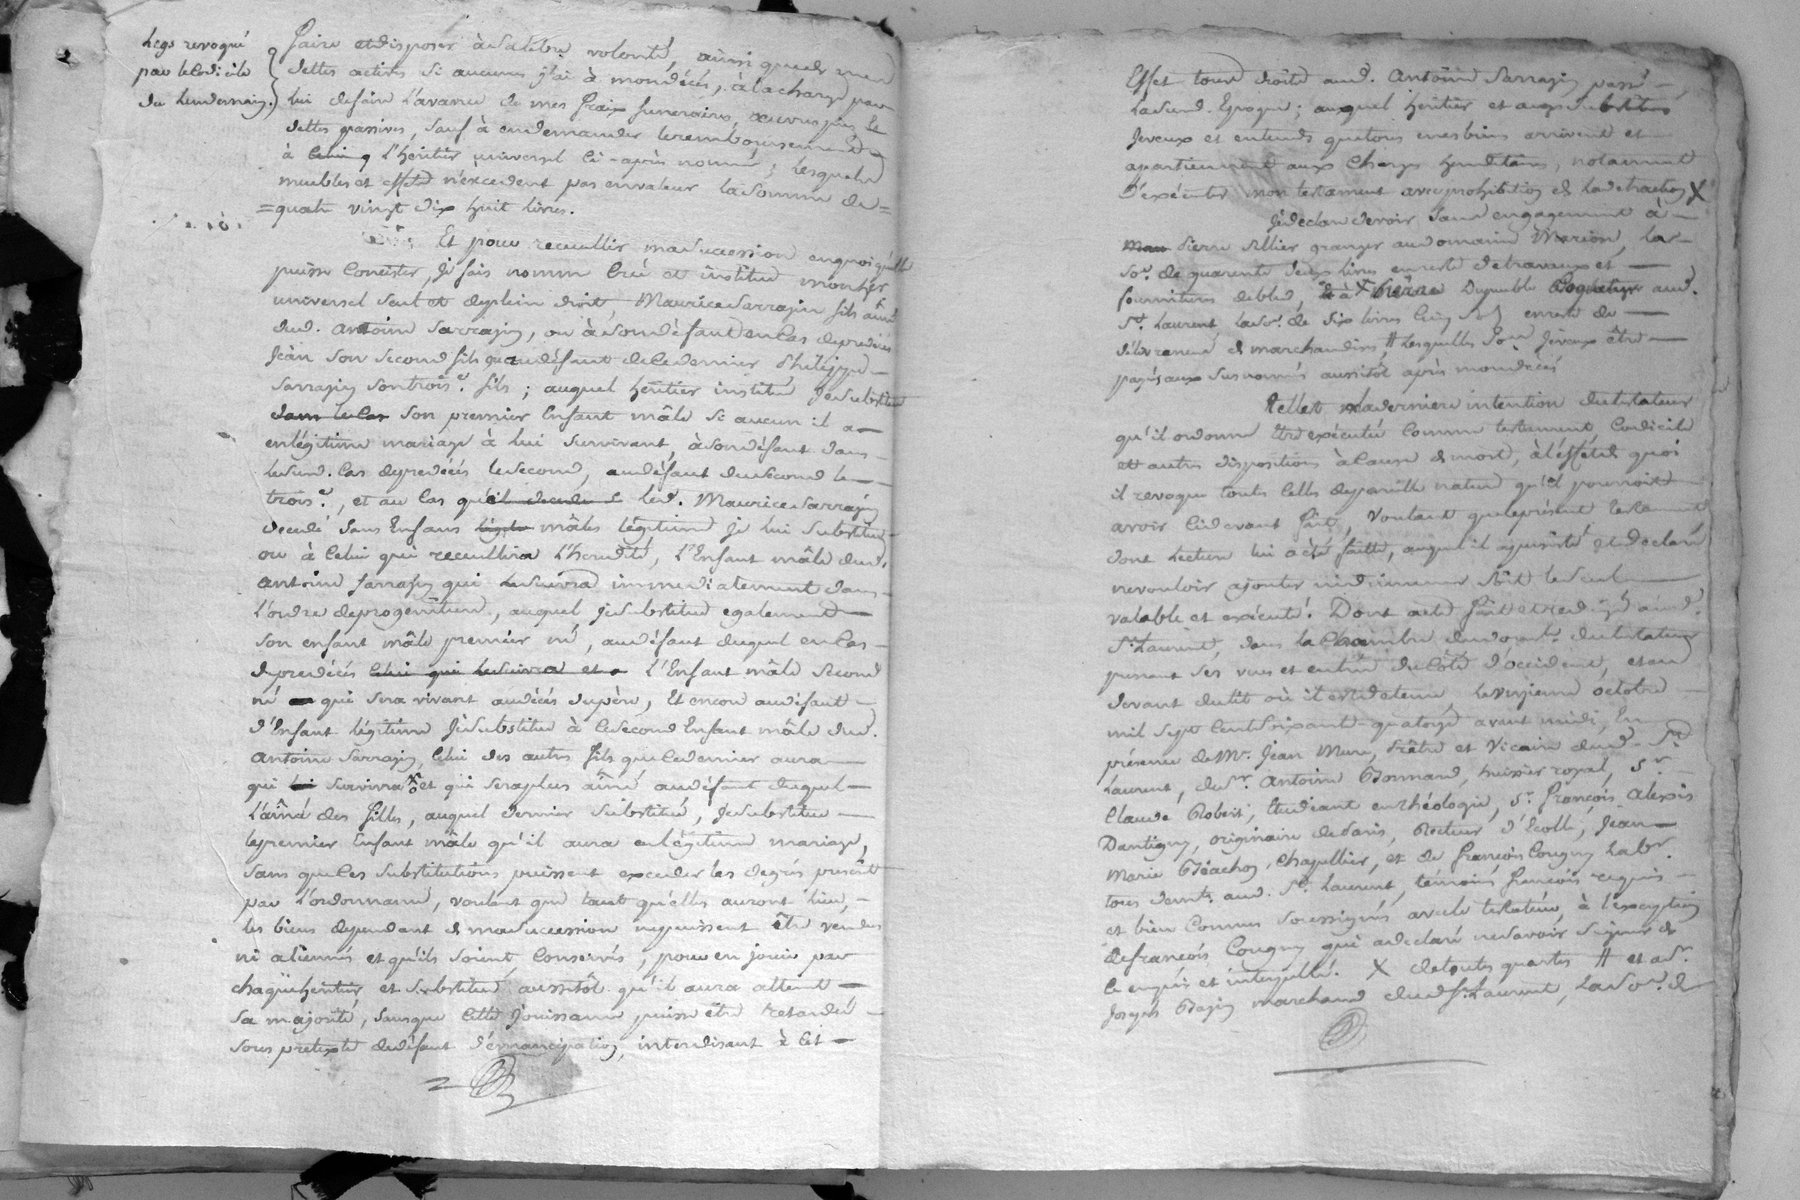 Legs revoqué
par le Codicile
du lendemain.
faire et disposer à sa libre volonté, ainsi que des mes
dettes actives si aucunes j'ai à mon décès, à la charge par
lui de faire l'avance de mes fraix funeraires, œuvres pies, &
dettes passives, sauf à en demander le remboursement
à l'héritier universel ci-après nommé; lesquels
meubles et effets n'excedent pas en valeur la somme de =
= quatre vingt dix huit livres.
Et pour recueillir ma succession en quoi qu'elle
puisse consister, je fais nomme crée et institue mon her.
universel seul et de plein droit, Maurice Sarrazin fils aîné
dud. Antoine Sarrazin, ou à son défaut en cas de predécès
Jean son second fils, ou au défaut de ce dernier Philippe
Sarrazin son trois.e fils; auquel héritier institué je substitue
dans le cas son premier Enfant mâle si aucun il a
en légitime mariage à lui survivant, à son défaut dans
le sud. cas de predécès le second, au défaut du second le
trois.e, et au cas qu'il decede led. Maurice Sarrazin
decedé sans Enfans mâles légitimes je lui substitue
ou à celui qui recueillira l'hérédité, l'Enfant mâle dud.
Antoine Sarrazin qui le suivra immediatement dans
l'ordre de progeniture, auquel je substitue egalement
son enfant mâle premier né, au défaut duquel en cas
de predécès celui qui le suivra et l'Enfant mâle second
né qui sera vivant au décès du père, Et encore au défaut
d'Enfant légitime je substitue à ce second Enfant mâle dud.
Antoine Sarrazin, celui des autres fils que ce dernier aura
qui lui survivra et qui sera plus aîné au défaut duquel
l'aîné des filles, auquel dernier substitué, je substitue
le premier Enfant mâle qu'il aura en légitime mariage,
sans que les substitutions puissent exceder les degrés prescrit
par l'ordonnance, voulant que tant qu'elles auront lieu,
les biens dependant de ma succession ne puissent être vendus
ni aliennés et qu'ils soient conservés, pour en jouir par
chaque héritier et substitué aussitôt qu'il aura atteint
sa majorité, sans que cette jouissance puisse être retardée
sous prétexte du défaut d'émancipation, interdisant à cet
Effet tous droits aud. Antoine Sarrazin passé
la sud. Epoque; auquel héritier et auxd. substitués
je veux et entends que tous mes biens arrivent et
apartiennent aux charges hereditaires, notamment
d'exécuter mon testament avec prohibition de la detraction X
je declare devoir sans engagement à
Pierre Allier granger au domaine Marion, la
so.e de quarente deux livres en reste de travaux et
fournitures de bled, à Pierre Dupuble aud.
St. Laurent, la so.e de six livres cinq s. en reste de
délivrances de marchandises, # lesquelles so.es je veux être
payés aux susnommés aussitôt après mon décès
Telle est la derniere intention du testateur
qu'il ordonne être exécutée comme testament codicile
et autres dispositions à cause de mort, à l'effet de quoi
il revoque toutes celles de pareille nature qu'il pourroit
avoir ci-devant fait, voulant que le présent testament
dont lecture lui a été faitte, auquel il a persisté et declaré
ne vouloir ajouter ni diminuer soit le seul
valable et exécuté. Dont acte fait et redigé aud.
St. Laurent, dans la chambre du dom.e du testateur
prenant ses vues et entrée du côté d'occident, et au
devant du lit où il est detenu, le onzieme octobre
mil sept cent soixante-quatorze avant midi, En
présence de Mr. Jean Mure, Prêtre et Vicaire dud. St.
Laurent, du Sr. Antoine Bonnand, huissier royal, Sr.
Claude Robert, Etudiant en théologie, Sr. François Alexis
Dantigny, originaire de Paris, Recteur d'Ecolle, Jean
Marie Béachon, Chapellier, et de François Cougny Labr.
tous demts. aud. St. Laurent, témoins françois requis
et bien connus soussignés avec le testateur, à l'exception
de François Cougny qui a declaré ne savoir signer de
ce enquis et interpellé. X de toutes quartes # et a Sr.
Joseph Bazin marchand dud. St. Laurent, la so.e de